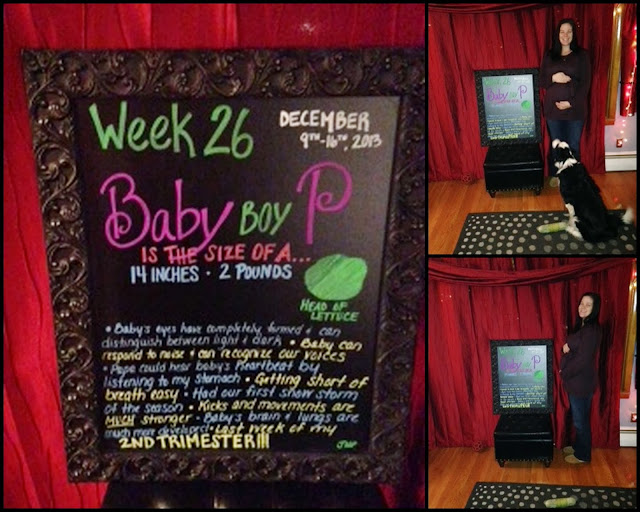 Week 26
DECEMBER
9TH-16TH, 2013
Baby BOY P
IS THE SIZE OF A...
14 INCHES · 2 POUNDS
HEAD OF
LETTUCE
• Baby's eyes have completely formed & can
distinguish between light & dark • Baby can
respond to noise & can recognize our voices
• Papa could hear baby's heartbeat by
listening to my stomach • Getting short of
breath easy • Had our first snow storm
of the season • Kicks and movements are
MUCH stronger • Baby's brain & lungs are
much more developed • Last week of my
2ND TRIMESTER!!!
Week 26
Baby BOY P
Week 26
Baby BOY P
2ND TRIMESTER